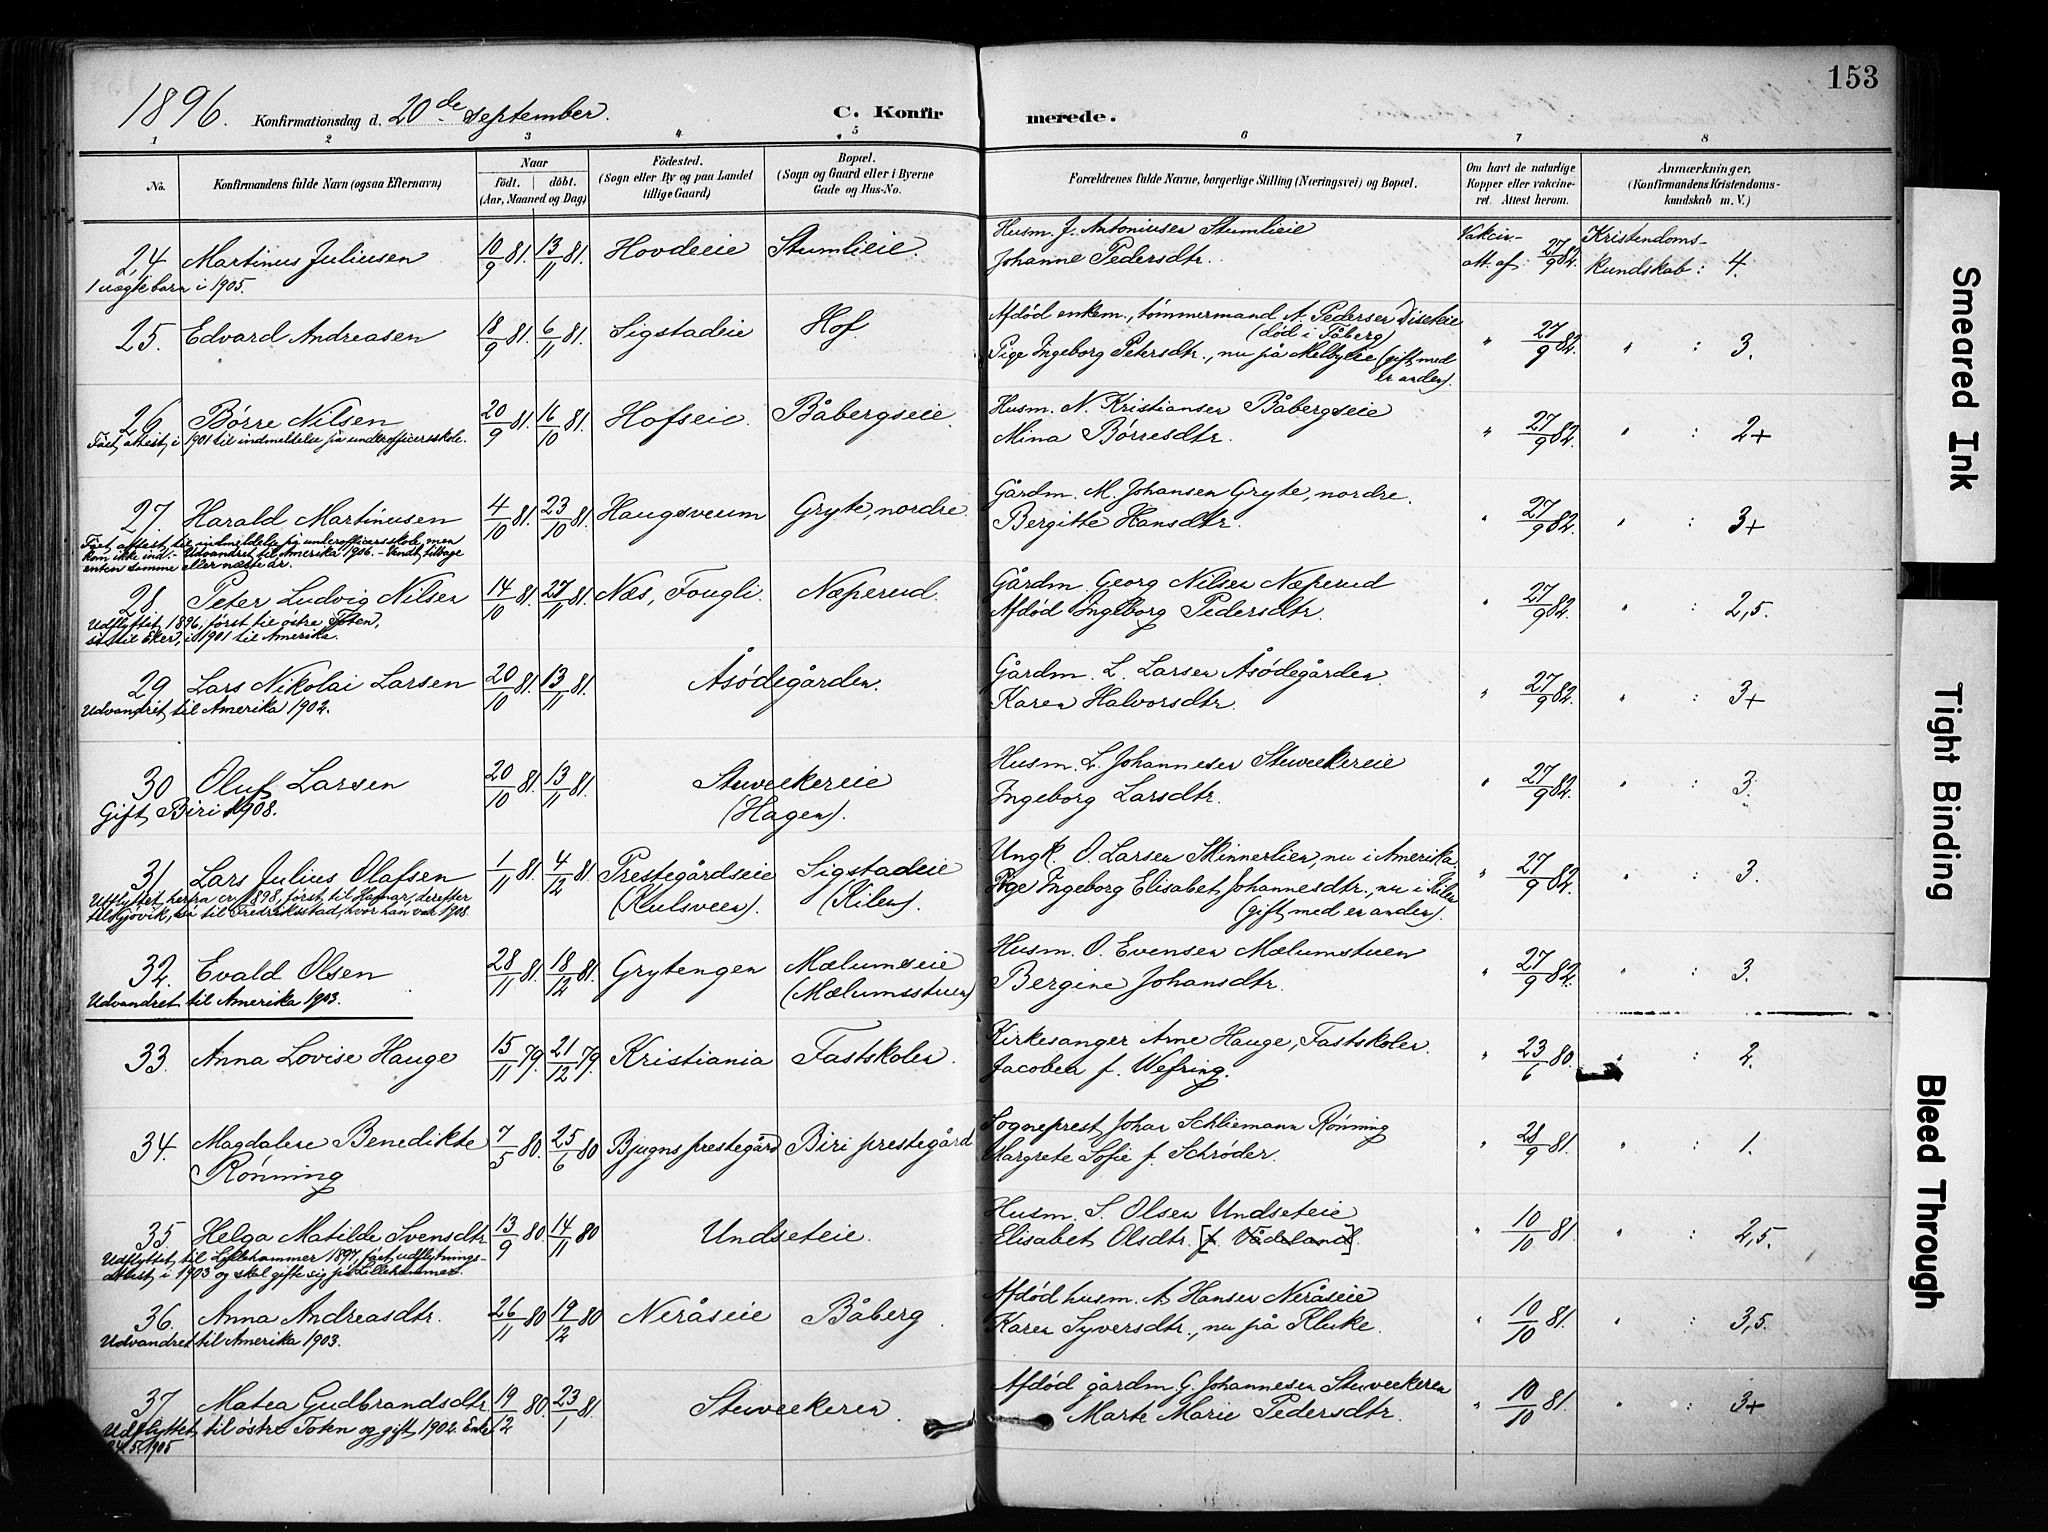 153
1896. Konfirmationsdag d. 20de September. C. Konfirmerede.
1 2 3 4 5 6 7 8
No. Konfirmandens fulde Navn (ogsaa Efternavn) Naar födt. döbt. (Aar, Maaned og Dag) Födested. (Sogn eller By og paa Landet tillige Gaard) Bopæl. (Sogn og Gaard eller i Byerne Gade og Hus-No. Forældrenes fulde Navne, borgerlige Stilling (Næringsvei) og Bopæl. Om havt de naturlige Kopper eller vakcineret. Attest herom. Anmærkninger, (Konfirmandens Kristendomskundskab m. V.)
24 Martinus Juliusen 10/9 81. 13/11 81. Hovdeeie Stumlieie. Husm. J. Antoniusen Stumlieie Vakcin- 27/9 82. Kristendoms-
Johanne Pedersdtr. att. af: kundskab: 4.
1 uægte barn i 1905.
25. Edvard Andreasen 18/9 81. 6/11 81. Sigstadeie Hof. Afdød enkem., tømmermand A. Pedersen Diseteie " 27/9 82. " : 3.
(død i Fåberg)
Pige Ingeborg Petersdtr., nu på Melbyeie (gift med
en anden).
26 Børre Nilsen 20/9 81. 16/10 81. Hofseie. Båbergseie. Husm. N. Kristiansen Båbergseie " 27/9 82. " : 2+
Mina Børresdtr.
Fået attest i 1901 til indmeldelse på underofficersskole.
27. Harald Martinusen 4/10 81. 23/10 81. Haugsveum Gryte, nordre. Gårdm. M. Johansen Gryte, nordre. " 27/9 82. " : 3+
Bergitte Hansdtr.
Fået attest til indmeldelse på underofficersskole, men
kom ikke ind. - Udvandret til Amerika 1906. - Vendt tilbage
enten samme eller næste år.
28 Peter Ludvig Nilsen 14/10 81. 27/11 81. Næs, Fougli. Næperud. Gårdm. Georg Nilsen Næperud " 27/9 82. " : 2,5.
Afdød Ingeborg Pedersdtr.
Udflyttet 1896, først til østre Toten,
så til Eker, i 1901 til Amerika.
29 Lars Nikolai Larsen 20/10 81. 13/11 81. Åsødegården. Gårdm. L. Larsen Åsødegården. " 27/9 82. " : 3+
Karen Halvorsdtr.
Udvandret til Amerika 1902.
30 Oluf Larsen 20/10 81. 13/11 81. Stuveekereie Husm. L. Johannesen Stuveekereie " 27/9 82. " : 3.
(Hagen). Ingeborg Larsdtr.
Gift, Biri 1908.
31 Lars Julius Olafsen 1/11 81. 4/12 81 Prestegårdseie Sigstadeie Ungk. O. Larsen Skinnerlien, nu i Amerika. " 27/9 82. " : 3.
(Kulsveen). (Kilen). Pige Ingeborg Elisabet Johannesdtr., nu i Kilen
(gift med en anden).
Utflyttet herfra ca. 1898, først til Hamar, derefter
til Gjøvik, så til Fredriksstad, hvor han var 1908.
32. Evald Olsen 28/11 81. 18/12 81. Grytengen Mælumseie Husm. O. Evensen Mælumstuen " 27/9 82. " : 3.
(Mælumsstuen) Bergine Johansdtr.
Udvandret til Amerika 1903.
33. Anna Lovise Hauge 15/11 79. 21/12 79. Kristiania Fastskolen. Kirkesanger Arne Hauge, Fastskolen. " 23/6 80. " : 2.
Jacobea f. Wefring.
34. Magdalene Benedikte 7/5 80. 25/6 80 Bjugns prestegård Biri prestegård Sogneprest Johan Schliemann Rønning " 28/9 81. " : 1.
Rønning Margrete Sofie f. Schrøder.
35 Helga Matilde Svensdtr. 13/9 80 14/11 80 Undseteie. Husm. S. Olsen Undseteie " 10/10 81. " : 2,5.
Elisabet Olsdtr.
Udflyttet til Lillehammer 1897, fået udflytnings-
attest i 1903 og skal gifte sig på Lillehammer.
36. Anna Andreasdtr. 26/11 80 19/12 80 Neråseie Båberg. Afdød husm. A. Hansen Neråseie " 10/10 81. " : 3,5.
Karen Syversdtr., nu på Kluke.
Udvandret til Amerika 1903.
37 Matea Gudbrandsdtr. 19/12 80. 23/1 81. Stuveekeren. Afdød gårdm. G. Johannesen Stuveekeren " 10/10 81. " : 3+
Marte Marie Pedersdtr.
Udflyttet til østre Toten og gift 1902. Enke
24.5.1905
Smeared Ink
Tight Binding
Bleed Through